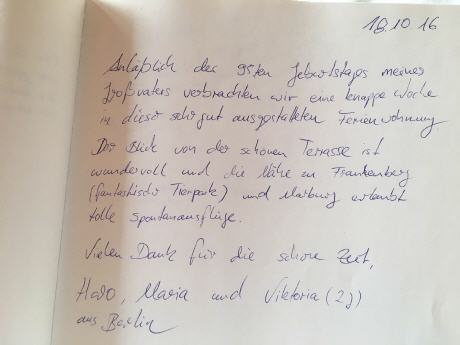 18.10.16
Anläßlich des 95ten Geburtstages meines
Großvaters verbrachten wir eine knappe Woche
in dieser sehr gut ausgestatteten Ferienwohnung
Der Blick von der schönen Terrasse ist
wundervoll und die Nähe zu Frankenberg
(fantastischer Tierpark) und Marburg erlaubt
tolle Spontanausflüge.
Vielen Dank für die schöne Zeit,
Maria und Viktoria (2J)
aus Berlin